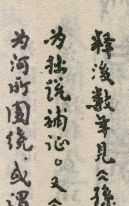 释后数年见《孫
为拙说補证。又《
为河所围绕，或谓